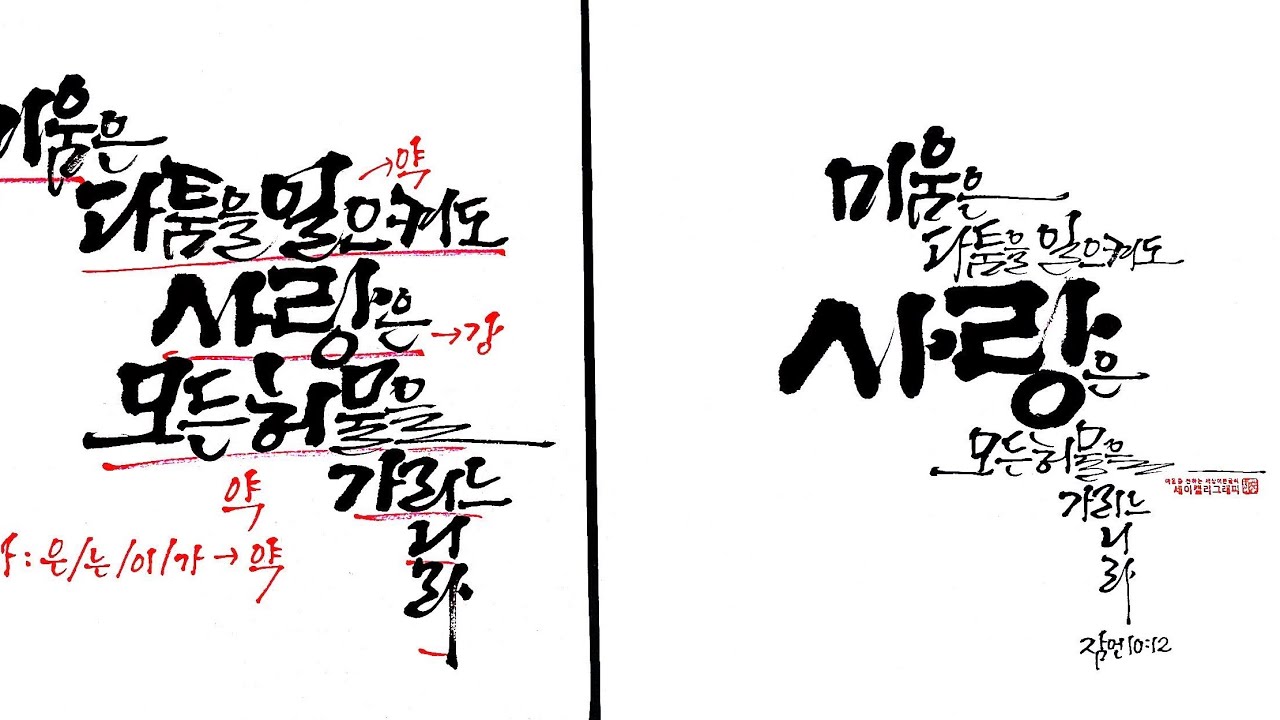 미움은
다툼을 일으켜도
→약
사랑은
→강
모든 허물을
약
가리느
니
라
: 은/는/이/가→약
미움은
다툼을 일으켜도
사랑은
모든 허물을
세이캘리그래피
가리느
니
라
잠언 10:12